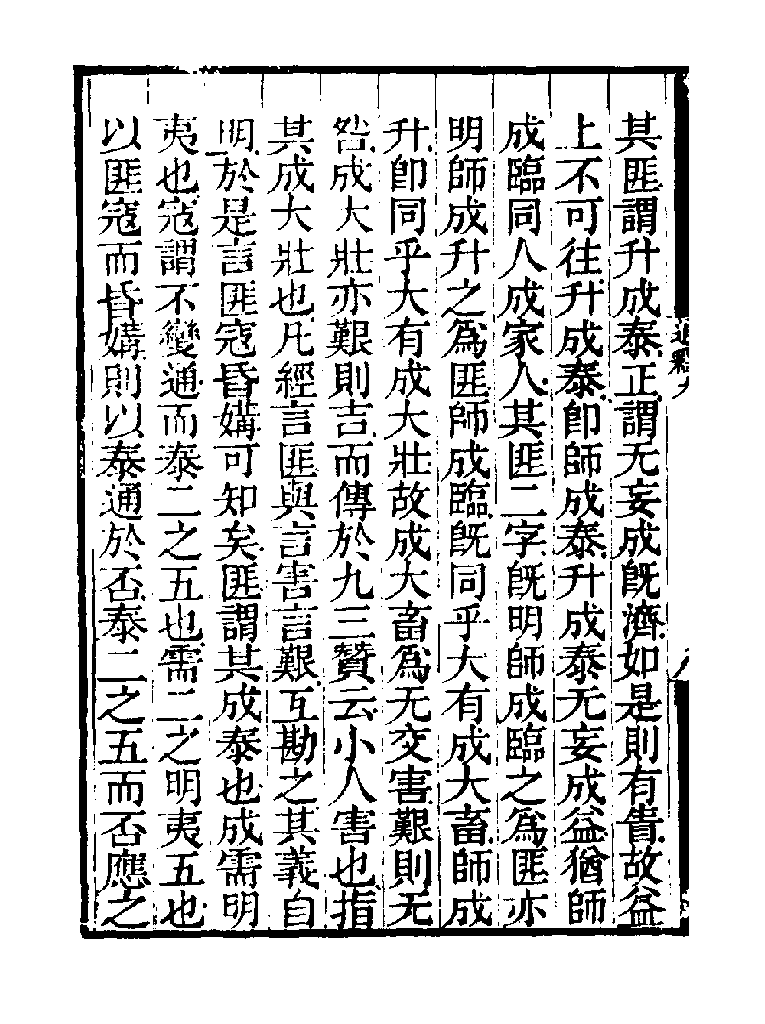 其匪謂升成泰正謂无妄成旣濟如是則有眚故益
上不可往升成泰卽師成泰升成泰无妄成益猶師
成臨同人成家人其匪二字旣明師成臨之爲匪亦
明師成升之爲匪師成臨旣同乎大有成大畜師成
升卽同乎大有成大壯故成大畜爲无交害艱則无
咎成大壯亦艱則吉而傳於九三贊云小人害也指
其成大壯也凡經言匪與言害言艱互勘之其義自
明於是言匪寇昏媾可知矣匪謂其成泰也成需明
夷也寇謂不變通而泰二之五也需二之明夷五也
以匪寇而昏媾則以泰通於否泰二之五而否應之